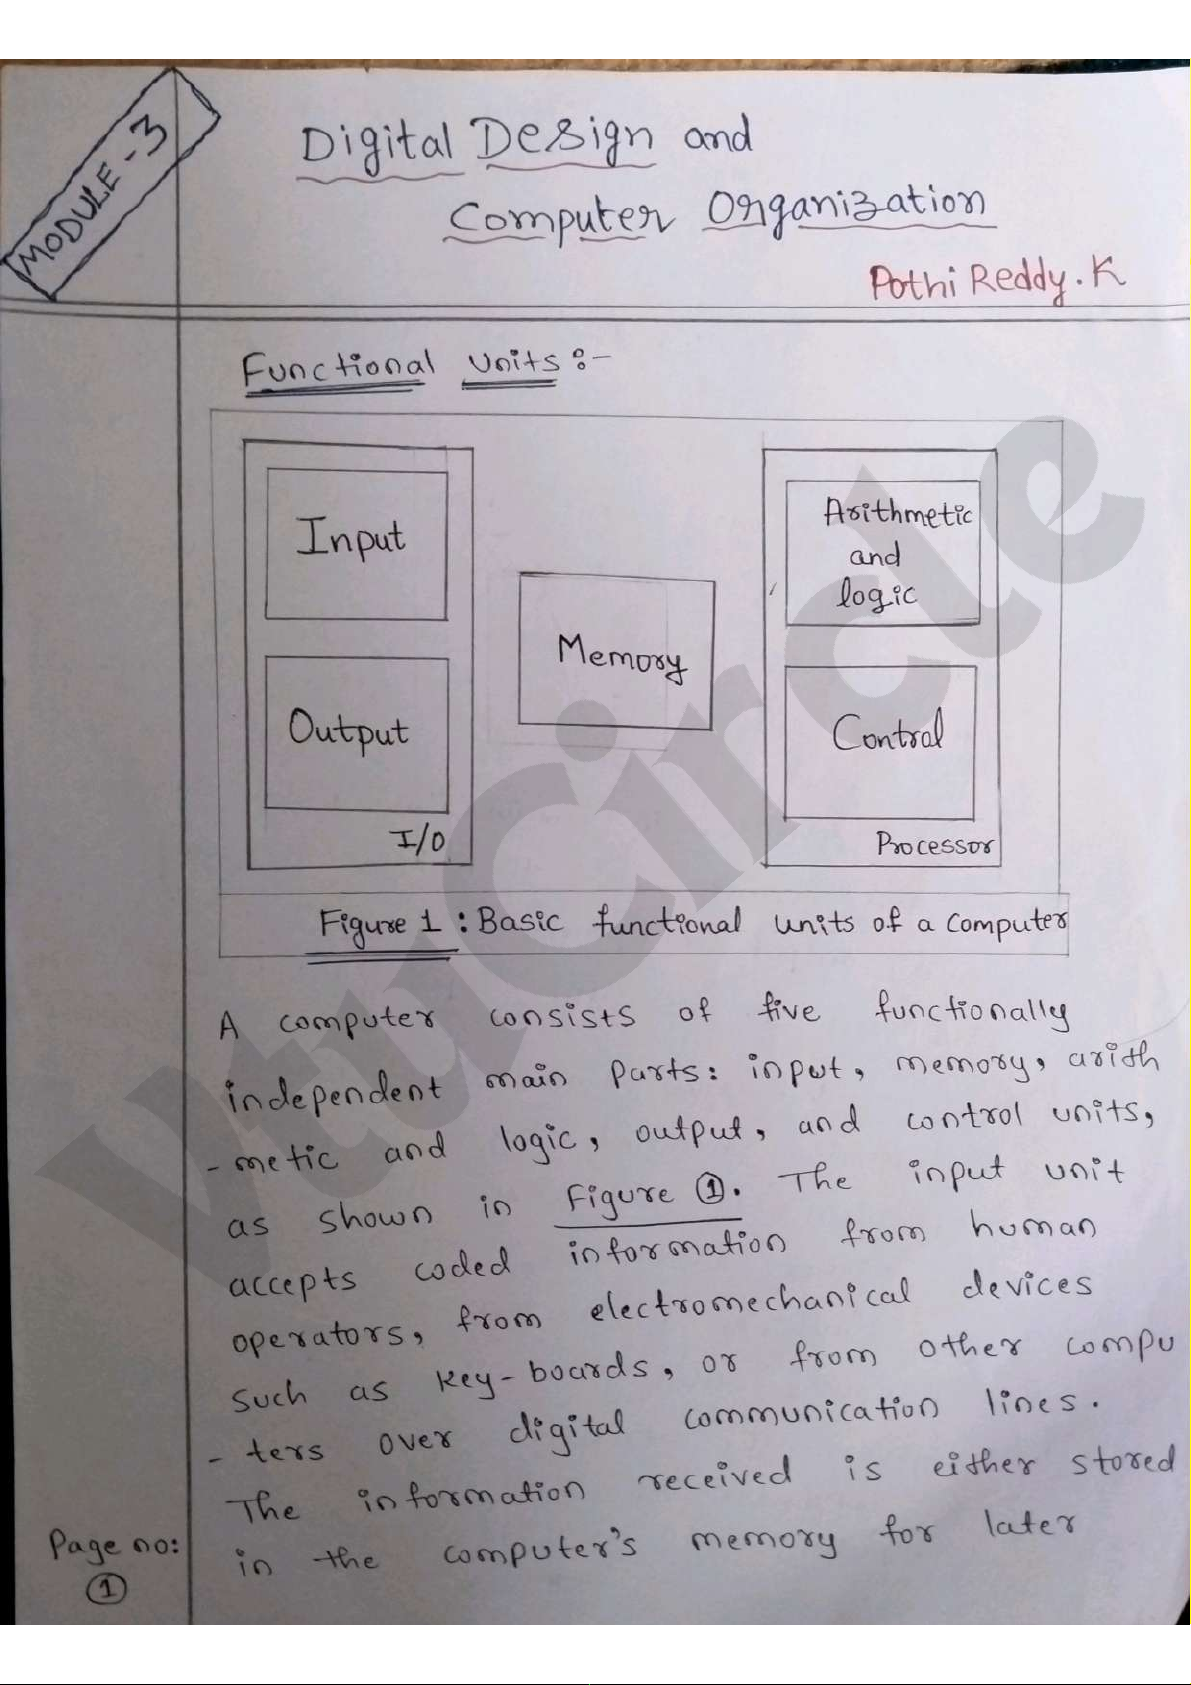 MODULE-3
Digital Design and
Computer Organization
Pothi Reddy.K
Functional Units:-
Input
Output
I/O
Memory
Arithmetic
and
logic
Control
Processor
Figure 1 : Basic functional units of a computer
A computer consists of five functionally
independent main parts: input, memory, arith
-metic and logic, output, and control units,
as shown in Figure ①. The input unit
accepts coded information from human
operators, from electromechanical devices
such as key-boards, or from other compu
-ters over digital communication lines.
The information received is either stored
in the computer's memory for later
Page no:
①
VtuCircle